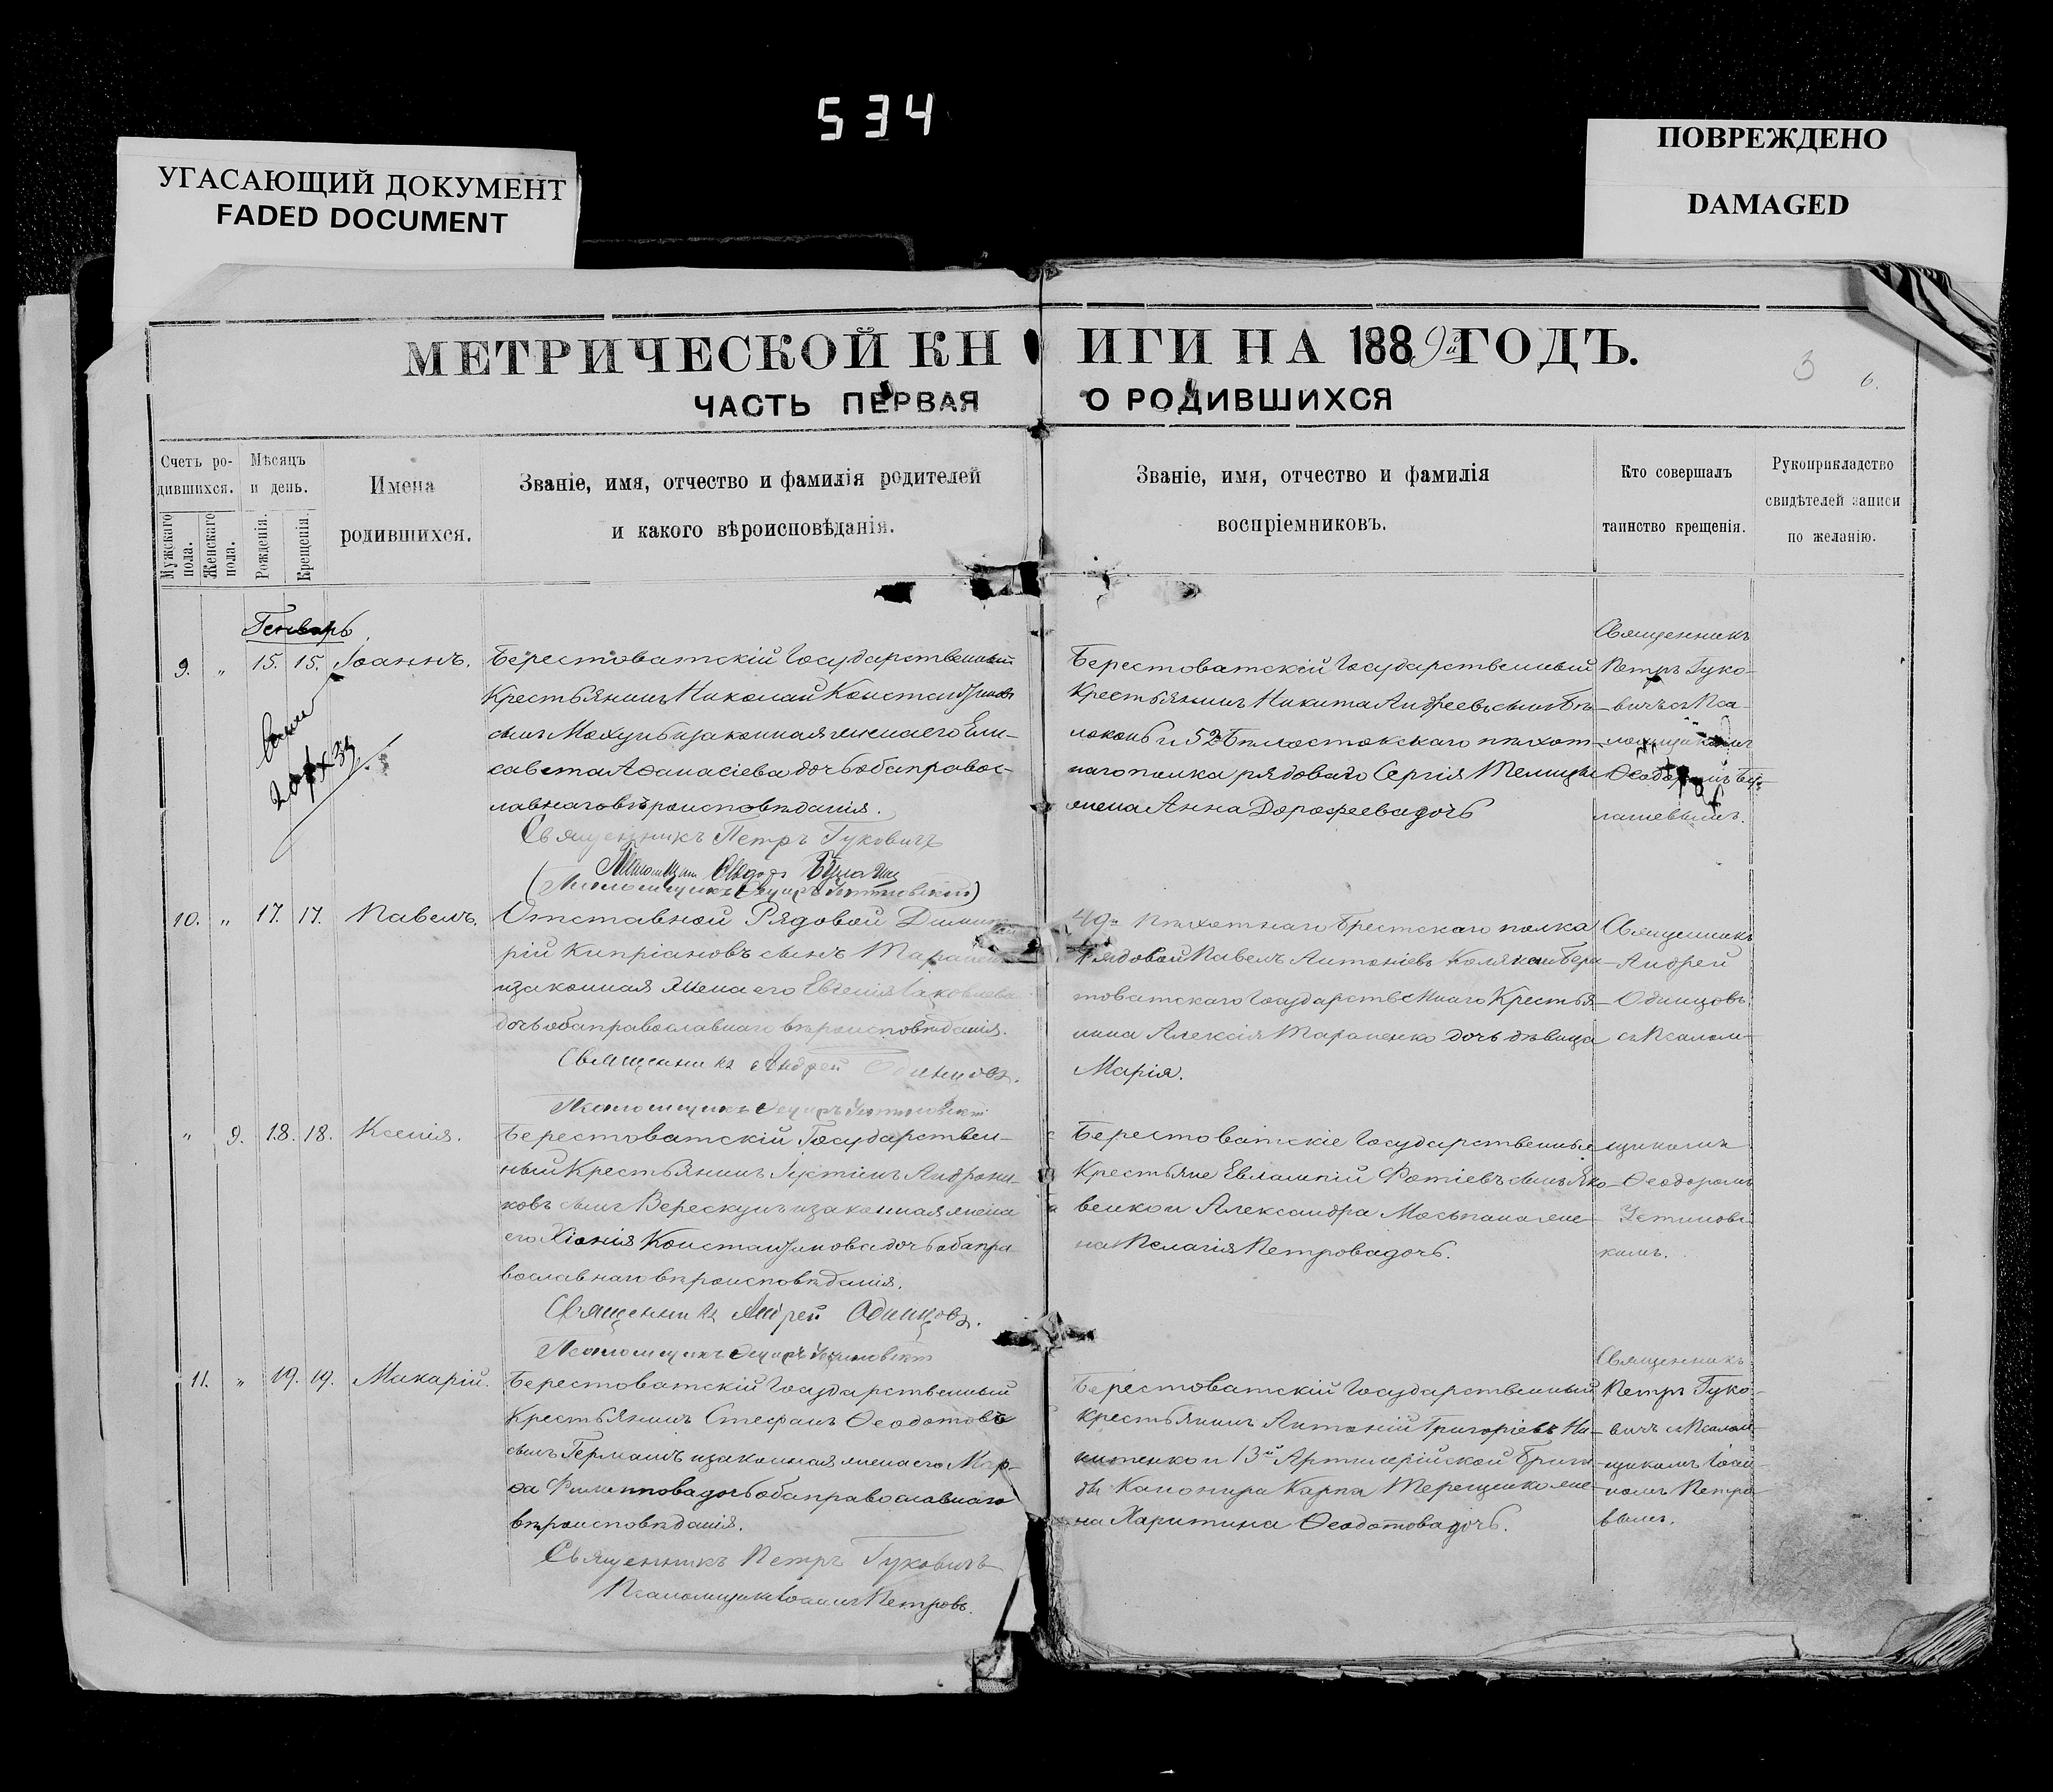 534
УГАСАЮЩИЙ ДОКУМЕНТ
FADED DOCUMENT
ПОВРЕЖДЕНО
DAMAGED
МЕТРИЧЕСКОЙ КНИГИ НА 1889й ГОДЪ.
3 6.
ЧАСТЬ ПЕРВАЯ О РОДИВШИХСЯ
Счетъ ро-
дившихся.
Мужскаго пола.
Женскаго пола.
Мѣсяцъ
и день.
Рожденія.
Крещенія.
Имена
родившихся.
Званіе, имя, отчество и фамилія родителей
и какого вѣроисповѣданія.
Званіе, имя, отчество и фамилія
воспріемниковъ.
Кто совершалъ
таинство крещенія.
Рукоприкладство
свидѣтелей записи
по желанію.
Генварь
9. " 15. 15. Іоаннъ.
Берестоватскій Государственный
Крестьянинъ Николай Константиновъ
сынъ Мохунь и законная жена его Ели-
савета Аѳанасіева дочь оба правос-
лавнаго вѣроисповѣданія.
Священникъ Петръ Гуковичъ
Берестоватскій Государственный
Крестьянинъ Никита Андреевъ сынъ Бѣ-
локонь и 52 Бѣлостокскаго пѣхот-
наго полка рядоваго Сергія
жена Анна Дороѳеева дочь
Священникъ
Петръ Гуко-
вичъ съ Пса-
ломщикомъ
Ѳеодоромъ
10. " 17. 17. Павелъ.
Отставной Рядовой Димит-
рій Кипріановъ сынъ Тараненко
и законная жена его Евгенія Іаковлева
дочь оба православнаго вѣроисповѣданія.
Священникъ Андрей Одинцовъ.
49го Пѣхотнаго Брестскаго полка
Рядовой Павелъ Антоніевъ и Берес-
товатскаго Государственнаго Крестья-
нина Алексія Тараненко дочь дѣвица
Марія.
Священникъ
Андрей
Одинцовъ
съ Псалом-
" 9. 18. 18. Ксенія.
Берестоватскій Государствен-
ный Крестьянинъ Іустинъ Андрони-
ковъ сынъ Верескунъ и законная жена
его Хіонія Константинова дочь оба пра-
вославнаго вѣроисповѣданія.
Священникъ Андрей Одинцовъ.
Берестоватскіе Государственные
Крестьяне Евлампій Фотіевъ сынъ Яко-
венко и Александра Мосьпана же-
на Пелагія Петрова дочь.
щикомъ
Ѳеодоромъ
Устиновс-
кимъ.
11. " 19. 19. Макарій.
Берестоватскій Государственный
Крестьянинъ Стефанъ Ѳеодотовъ
сынъ Германъ и законная жена его Мар-
ѳа Филиппова дочь оба православнаго
вѣроисповѣданія.
Священникъ Петръ Гуковичъ
Псаломщикъ Іоаннъ Петровъ.
Берестоватскій Государственный
крестьянинъ Антоній Григоріевъ Ни-
китенко и 13й Артилерійской Брига-
ды Канонира Карпа Терещенко же-
на Харитина Ѳеодотова дочь.
Священникъ
Петръ Гуко-
вичъ съ Псалом-
щикомъ Іоан-
номъ Петро-
вымъ.